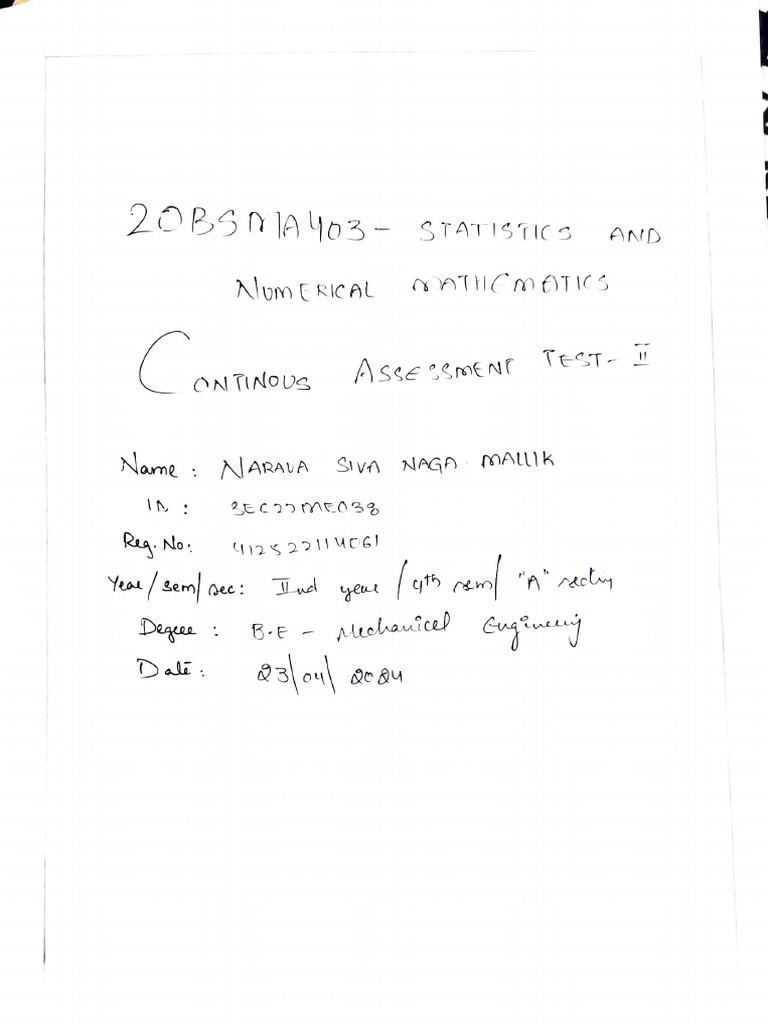 20BSMA403 - STATISTICS AND
NUMERICAL MATHEMATICS
CONTINOUS ASSESSMENT TEST - II
Name : NARAVA SIVA NAGA MALLIK
ID : SEC22ME038
Reg. No: 412522114061
Year/sem/sec: IInd year / 4th sem/ "A" section
Degree : B.E - Mechanical Engineering
Date : 23/04/2024